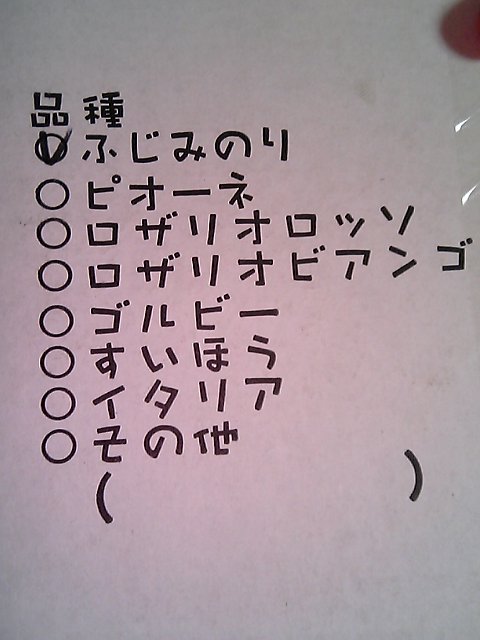 品種
○ふじみのり
○ピオーネ
○ロザリオロッソ
○ロザリオビアンゴ
○ゴルビー
○すいほう
○イタリア
○その他
(　　　　　　)